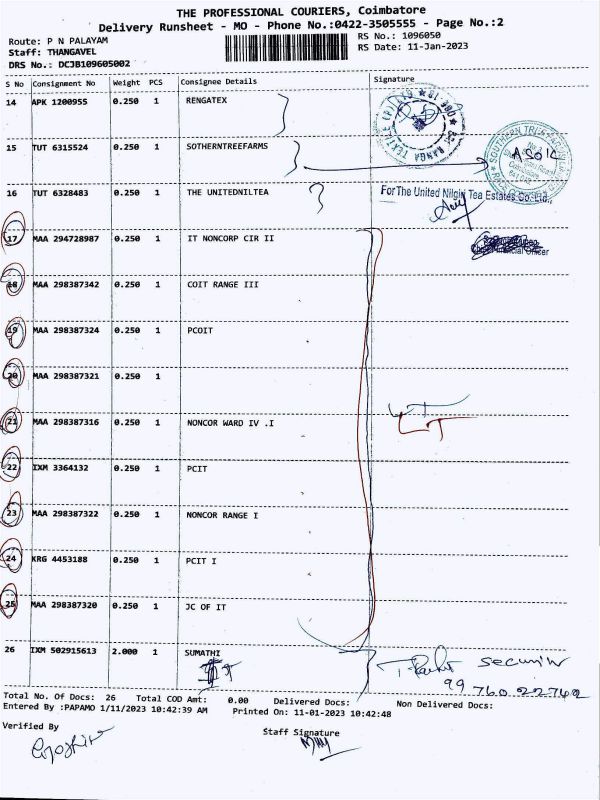 THE PROFESSIONAL COURIERS, Coimbatore
Delivery Runsheet - MO - Phone No.:0422-3505555 - Page No.:2
Route: P N PALAYAM
RS No.: 1096050
Staff: THANGAVEL
RS Date: 11-Jan-2023
DRS No.: DCJB109605002
S No Consignment No Weight PCS Consignee Details Signature
14 APK 1200955 0.250 1 RENGATEX
15 TUT 6315524 0.250 1 SOTHERNTREEFARMS
16 TUT 6328483 0.250 1 THE UNITEDNILTEA
For The United Nilgiri Tea Estates Co. Ltd.,
17 MAA 294728987 0.250 1 IT NONCORP CIR II
18 MAA 298387342 0.250 1 COIT RANGE III
19 MAA 298387324 0.250 1 PCOIT
20 MAA 298387321 0.250 1
21 MAA 298387316 0.250 1 NONCOR WARD IV .I
22 IXM 3364132 0.250 1 PCIT
23 MAA 298387322 0.250 1 NONCOR RANGE I
24 KRG 4453188 0.250 1 PCIT I
25 MAA 298387320 0.250 1 JC OF IT
26 IXM 502915613 2.000 1 SUMATHI
Total No. Of Docs: 26 Total COD Amt: 0.00 Delivered Docs: Non Delivered Docs:
Entered By :PAPAMO 1/11/2023 10:42:39 AM Printed On: 11-01-2023 10:42:48
Verified By
Staff Signature